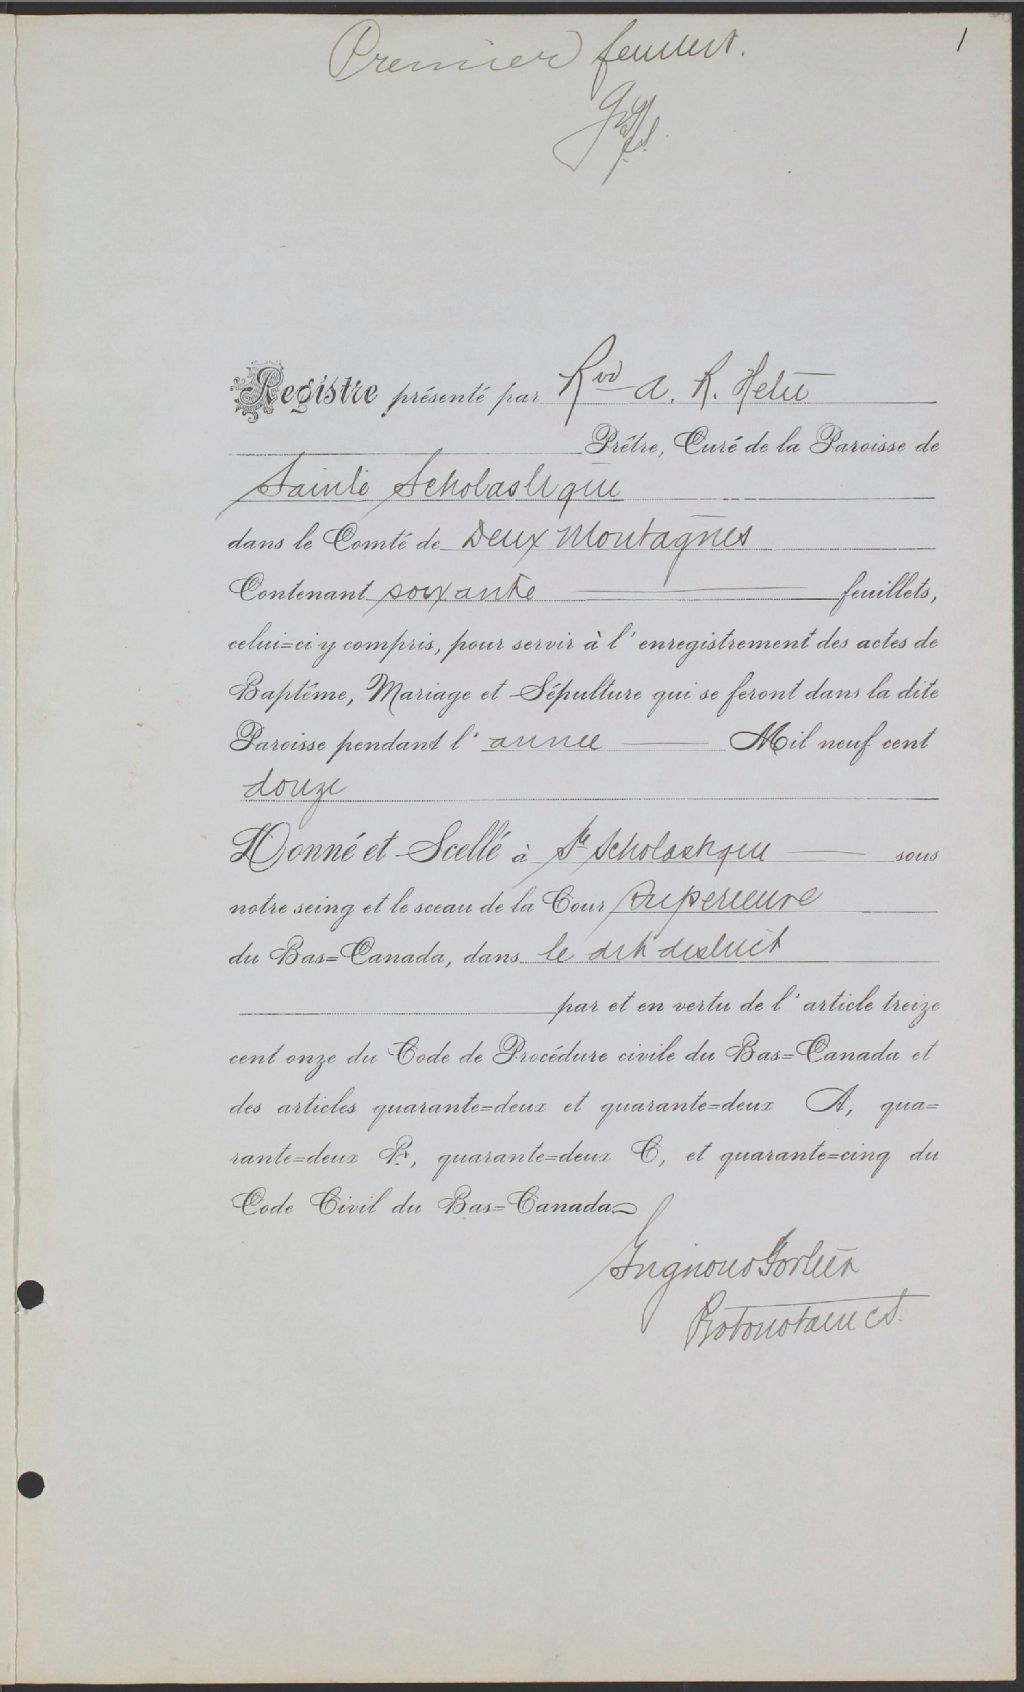 1
Premier feuillet.
Registre présenté par Rvd A. R. Hetu
Prêtre, Curé de la Paroisse de
Sainte Scholastique
dans le Comté de Deux Montagnes
Contenant soixante feuillets,
celui=ci y compris, pour servir à l'enregistrement des actes de
Baptême, Mariage et Sépulture qui se feront dans la dite
Paroisse pendant l'année Mil neuf cent
douze
Donné et Scellé à Ste Scholastique sous
notre seing et le sceau de la Cour Superieure
du Bas=Canada, dans le dit district
par et en vertu de l'article treize
cent onze du Code de Procédure civile du Bas=Canada et
des articles quarante=deux et quarante=deux A, qua=
rante=deux B, quarante=deux C, et quarante=cinq du
Code Civil du Bas=Canada
Grignon & Fortier
Protonotaire C.S.